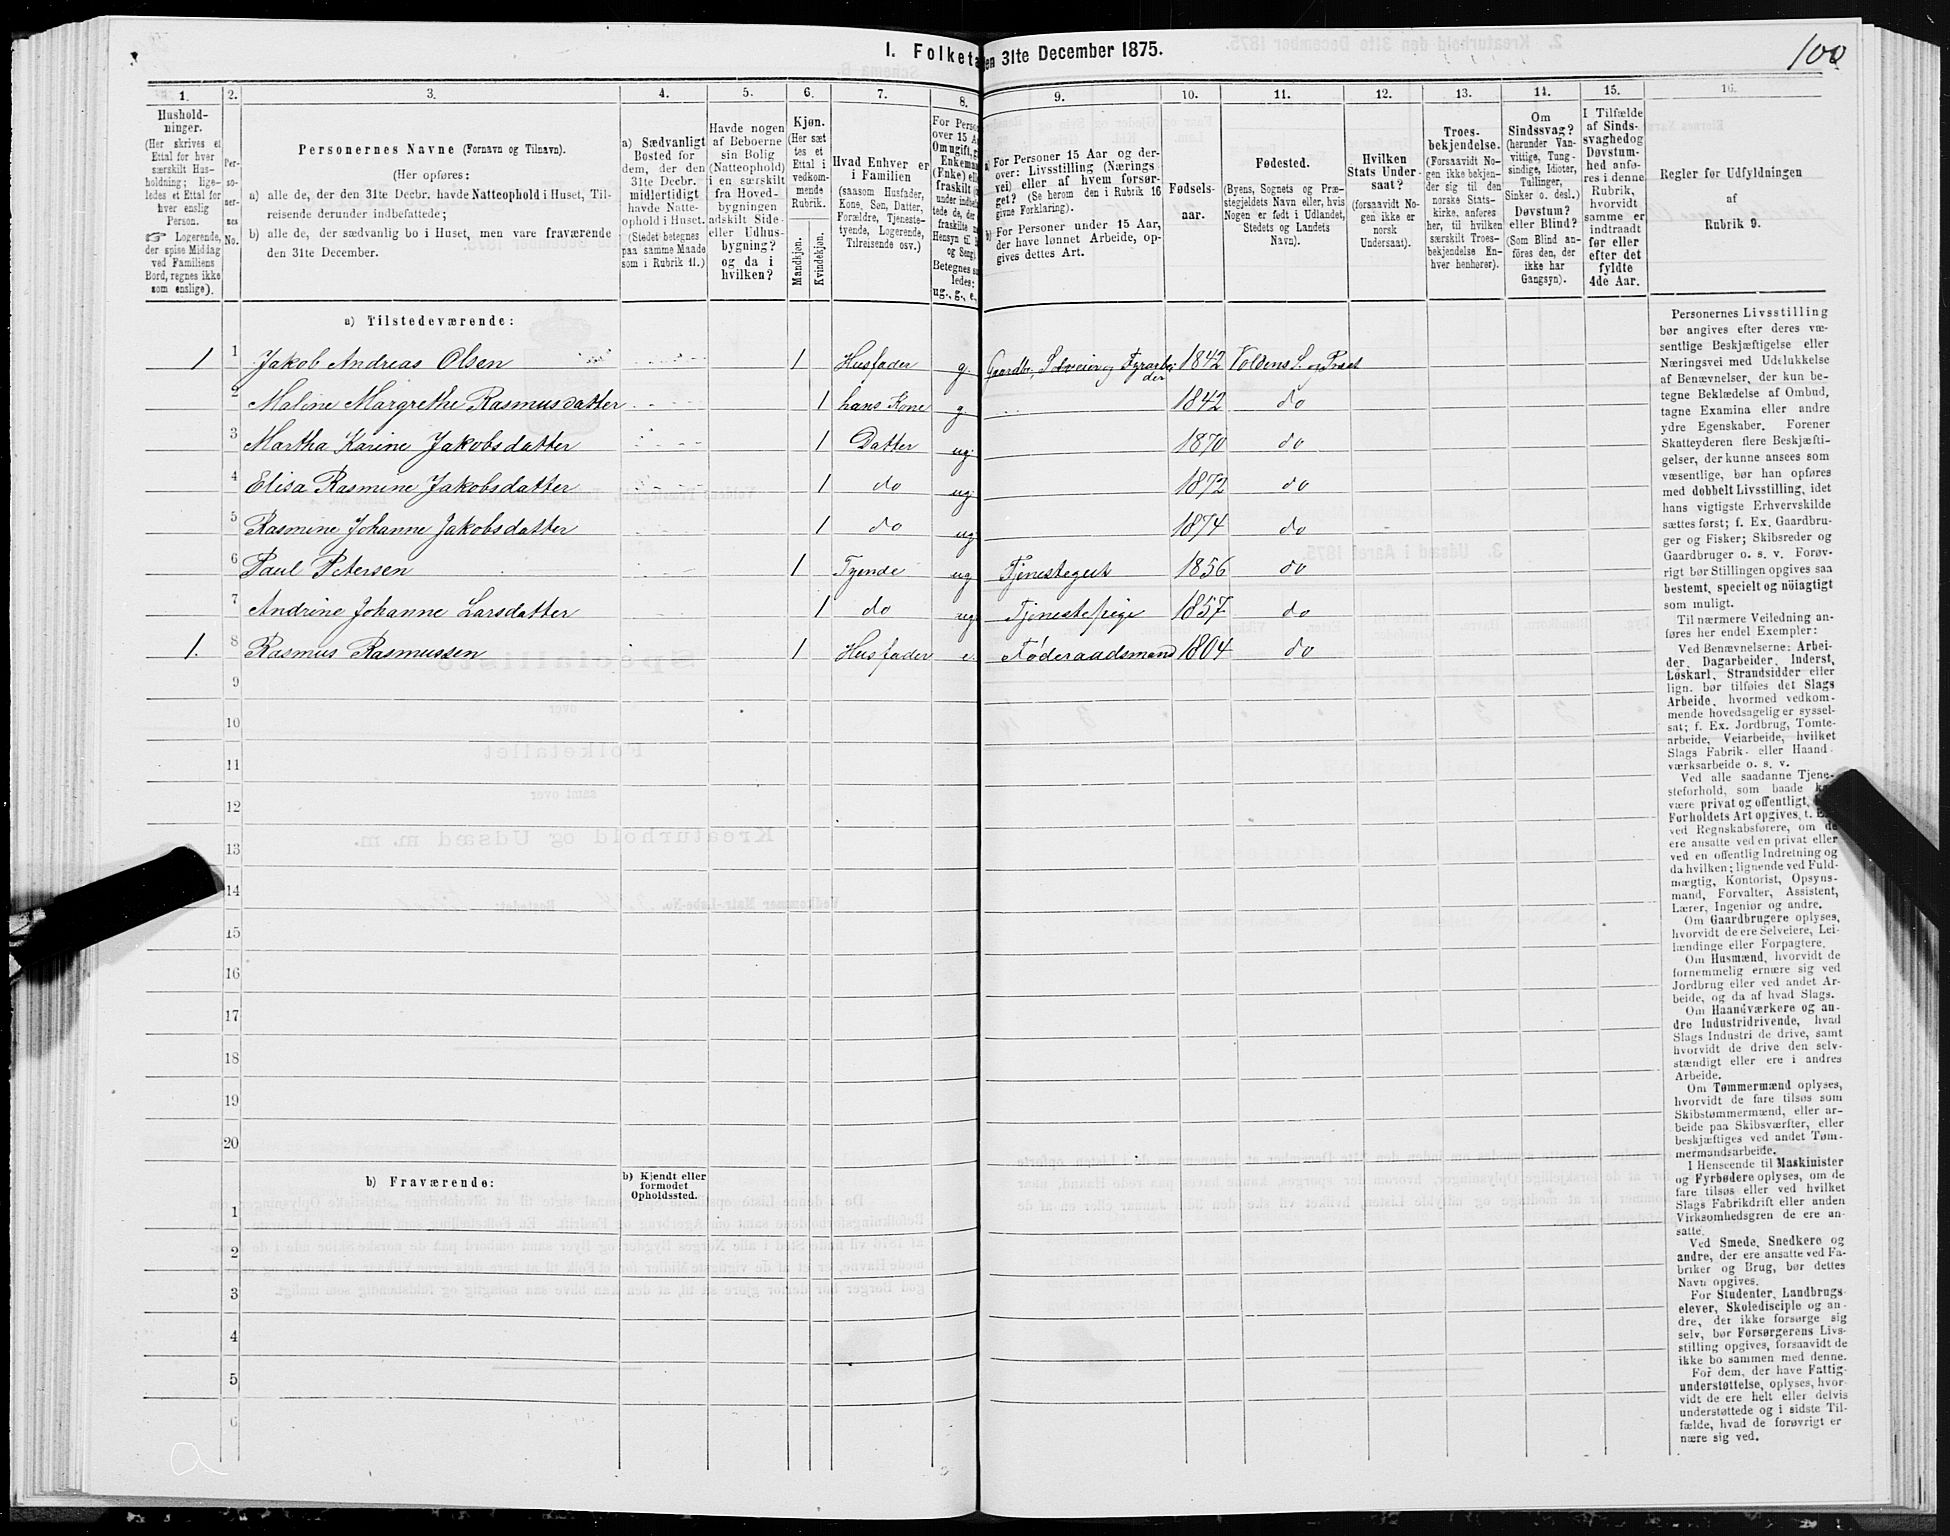 I. Folketæ
en 31te December 1875.
100
1.
2.
3.
4.
5.
6.
7.
8.
9.
10.
11.
12.
13.
14.
15.
16.
Hushold-
ninger.
(Her skrives et
Ettal for hver
særskilt Hus-
holdning; lige-
ledes et Ettal for
hver enslig
Person.
☞ Logerende,
der spise Middag
ved Familiens
Bord, regnes ikke
som enslige).
Per-
so-
ner-
nes
No.
Personernes Navne (Fornavn og Tilnavn).
(Her opføres:
a) alle de, der den 31te Decbr. havde Natteophold i Huset, Til-
reisende derunder indbefattede;
b) alle de, der sædvanlig bo i Huset, men vare fraværende
den 31te December.
a) Sædvanligt
Bosted for
dem, der den
31te Decbr.
midlertidigt
havde Natte-
ophold i Huset.
(Stedet betegnes
paa samme Maade
som i Rubrik 11.)
Havde nogen
af Beboerne
sin Bolig
(Natteophold)
i en særskilt
fra Hoved-
bygningen
adskilt Side-
eller Udhus-
bygning?
og da i
hvilken?
Kjøn.
(Her sæt
tes et
Ettal i
vedkom-
mende
Rubrik.
Mandkjøn.
Kvindekjøn.
Hvad Enhver er
i Familien
(saasom Husfader,
Kone, Søn, Datter,
Forældre, Tjeneste-
tyende, Logerende,
Tilreisende osv.)
For Perso
over 15 Aa
Om ugift, g
Enkeman
(Enke) ell
fraskilt (
under indb
tede de, der
fraskilte
Hensyn til
og Seng)
Betegnes s
ledes:
ug., g., e.,
a) For Personer 15 Aar og der-
over: Livsstilling (Nærings-
vei) eller af hvem forsør-
get? (Se herom den i Rubrik 16
givne Forklaring).
b) For Personer under 15 Aar,
der have lønnet Arbeide, op-
gives dettes Art.
Fødsels-
aar.
Fødested.
(Byens, Sognets og Præ-
stegjeldets Navn eller, hvis
Nogen er født i Udlandet,
Stedets og Landets
Navn).
Hvilken
Stats Under-
saat?
(forsaavidt No-
gen ikke er
norsk
Undersaat).
Troes-
bekjendelse.
(Forsaavidt No-
gen ikke bekjen-
der sig til den
norske Stats-
kirke, anføres
her, til hvilken
særskilt Troes-
bekjendelse En-
hver henhører).
Om
Sindssvag?
(herunder Van-
vittige, Tung-
sindige, Idioter,
Tullinger,
Sinker o. desl.)
Døvstum?
eller Blind?
(Som Blind an-
føres den, der
ikke har
Gangsyn).
I Tilfælde
af Sinds-
svaghed og
Døvstum-
hed anfø-
res i denne
Rubrik,
hvorvidt
samme er
indtraadt
før eller
efter det
fyldte
4de Aar.
Regler for Udfyldningen
af
Rubrik 9.
a) Tilstedeværende:
1 1 Jakob Andreas Olsen 1 Husfader g. Gaardbr, Selveier og Fyrarbei- 1842 Voldens S. og Præst
der
2 Maline Margrethe Rasmusdatter 1 hans Kone g. 1842 do
3 Martha Karine Jakobsdatter 1 Datter ug. 1870 do
4 Elisa Rasmine Jakobsdatter 1 do ug. 1872 do
5 Rasmine Johanne Jakobsdatter 1 do ug. 1874 do
6 Paul Petersen 1 Tyende ug Tjenestegut 1856 do
7 Andrine Johanne Larsdatter 1 do ug. Tjenestepige 1857 do
1. 8 Rasmus Rasmussen 1 Husfader e. Føderaadsmand 1804 do
9
10
11
12
13
14
15
16
17
18
19
20
b) Fraværende:
b) Kjendt eller
formodet
Opholdssted.
1
2
3
4
5
6
Personernes Livsstilling
bør angives efter deres væ-
sentlige Beskjæftigelse eller
Næringsvei med Udelukkelse
af Benævnelser, der kun be-
tegne Beklædelse af Ombud,
tagne Examina eller andre
ydre Egenskaber. Forener
Skatteyderen flere Beskjæfti-
gelser, der kunne ansees som
væsentlige, bør han opføres
med dobbelt Livsstilling, idet
hans vigtigste Erhvervskilde
sættes først; f. Ex. Gaardbru-
ger og Fisker; Skibsreder og
Gaardbruger o. s. v. Forøv-
rigt bør Stillingen opgives saa
bestemt, specielt og nøiagtigt
som muligt.
Til nærmere Veiledning an-
føres her endel Exempler:
Ved Benævnelserne: Arbei-
der, Dagarbeider, Inderst,
Løskarl, Strandsidder eller
lign. bør tilføies det Slags
Arbeide, hvormed vedkom-
mende hovedsagelig er syssel-
sat; f. Ex. Jordbrug, Tomte-
arbeide, Veiarbeide, hvilket
Slags Fabrik- eller Haand-
værksarbeide o. s. v.
Ved alle saadanne Tjene-
steforhold, som baade k
være privat og offentligt,
Forholdets Art opgives, t. E
ved Regnskabsførere, om de
ere ansatte ved en privat eller
ved en offentlig Indretning og
da hvilken; lignende ved Fuld-
mægtig, Kontorist, Opsyns-
mand, Forvalter, Assistent,
Lærer, Ingeniør og andre.
Om Gaardbrugere oplyses,
hvorvidt de ere Selveiere, Lei-
lændinge eller Forpagtere.
Om Husmænd, hvorvidt de
fornemmelig ernære sig ved
Jordbrug eller ved andet Ar-
beide, og da af hvad Slags.
Om Haandværkere og an-
dre Industridrivende, hvad
Slags Industri de drive, samt
hvorvidt de drive den selv-
stændigt eller ere i andres
Arbeide.
Om Tømmermænd oplyses,
hvorvidt de fare tilsøs som
Skibstømmermænd, eller ar-
beide paa Skibsværfter, eller
beskjæftiges ved andet Tøm-
mermandsarbeide.
I Henseende til Maskinister
og Fyrbødere oplyses, om de
fare tilsøs eller ved hvilket
Slags Fabrikdrift eller anden
Virksomhedsgren de ere an-
satte.
Ved Smede, Snedkere og
andre, der ere ansatte ved Fa-
briker og Brug, bør dettes
Navn opgives.
For Studenter, Landbrugs-
elever, Skoledisciple og an-
dre, der ikke forsørge sig
selv, bør Forsørgerens Livs-
stilling opgives, forsaavidt de
ikke bo sammen med denne.
For dem, der have Fattig-
understøttelse, oplyses, hvor-
vidt de ere helt eller delvis
understøttede og i sidste Til-
fælde, hvad de forøvrigt er
nære sig ved.